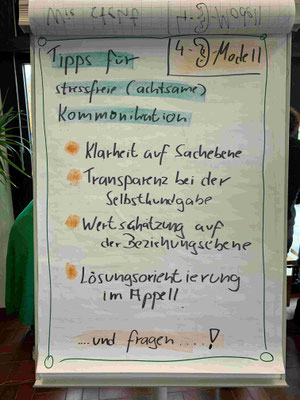 Tipps für
4-Modell
stressfreie (achtsame)
Kommunikation
Klarheit auf Sachebene
Transparenz bei der
Selbstkundgabe
Wertschätzung auf
der Beziehungsebene
Lösungsorientierung
im Appell
....und fragen....!